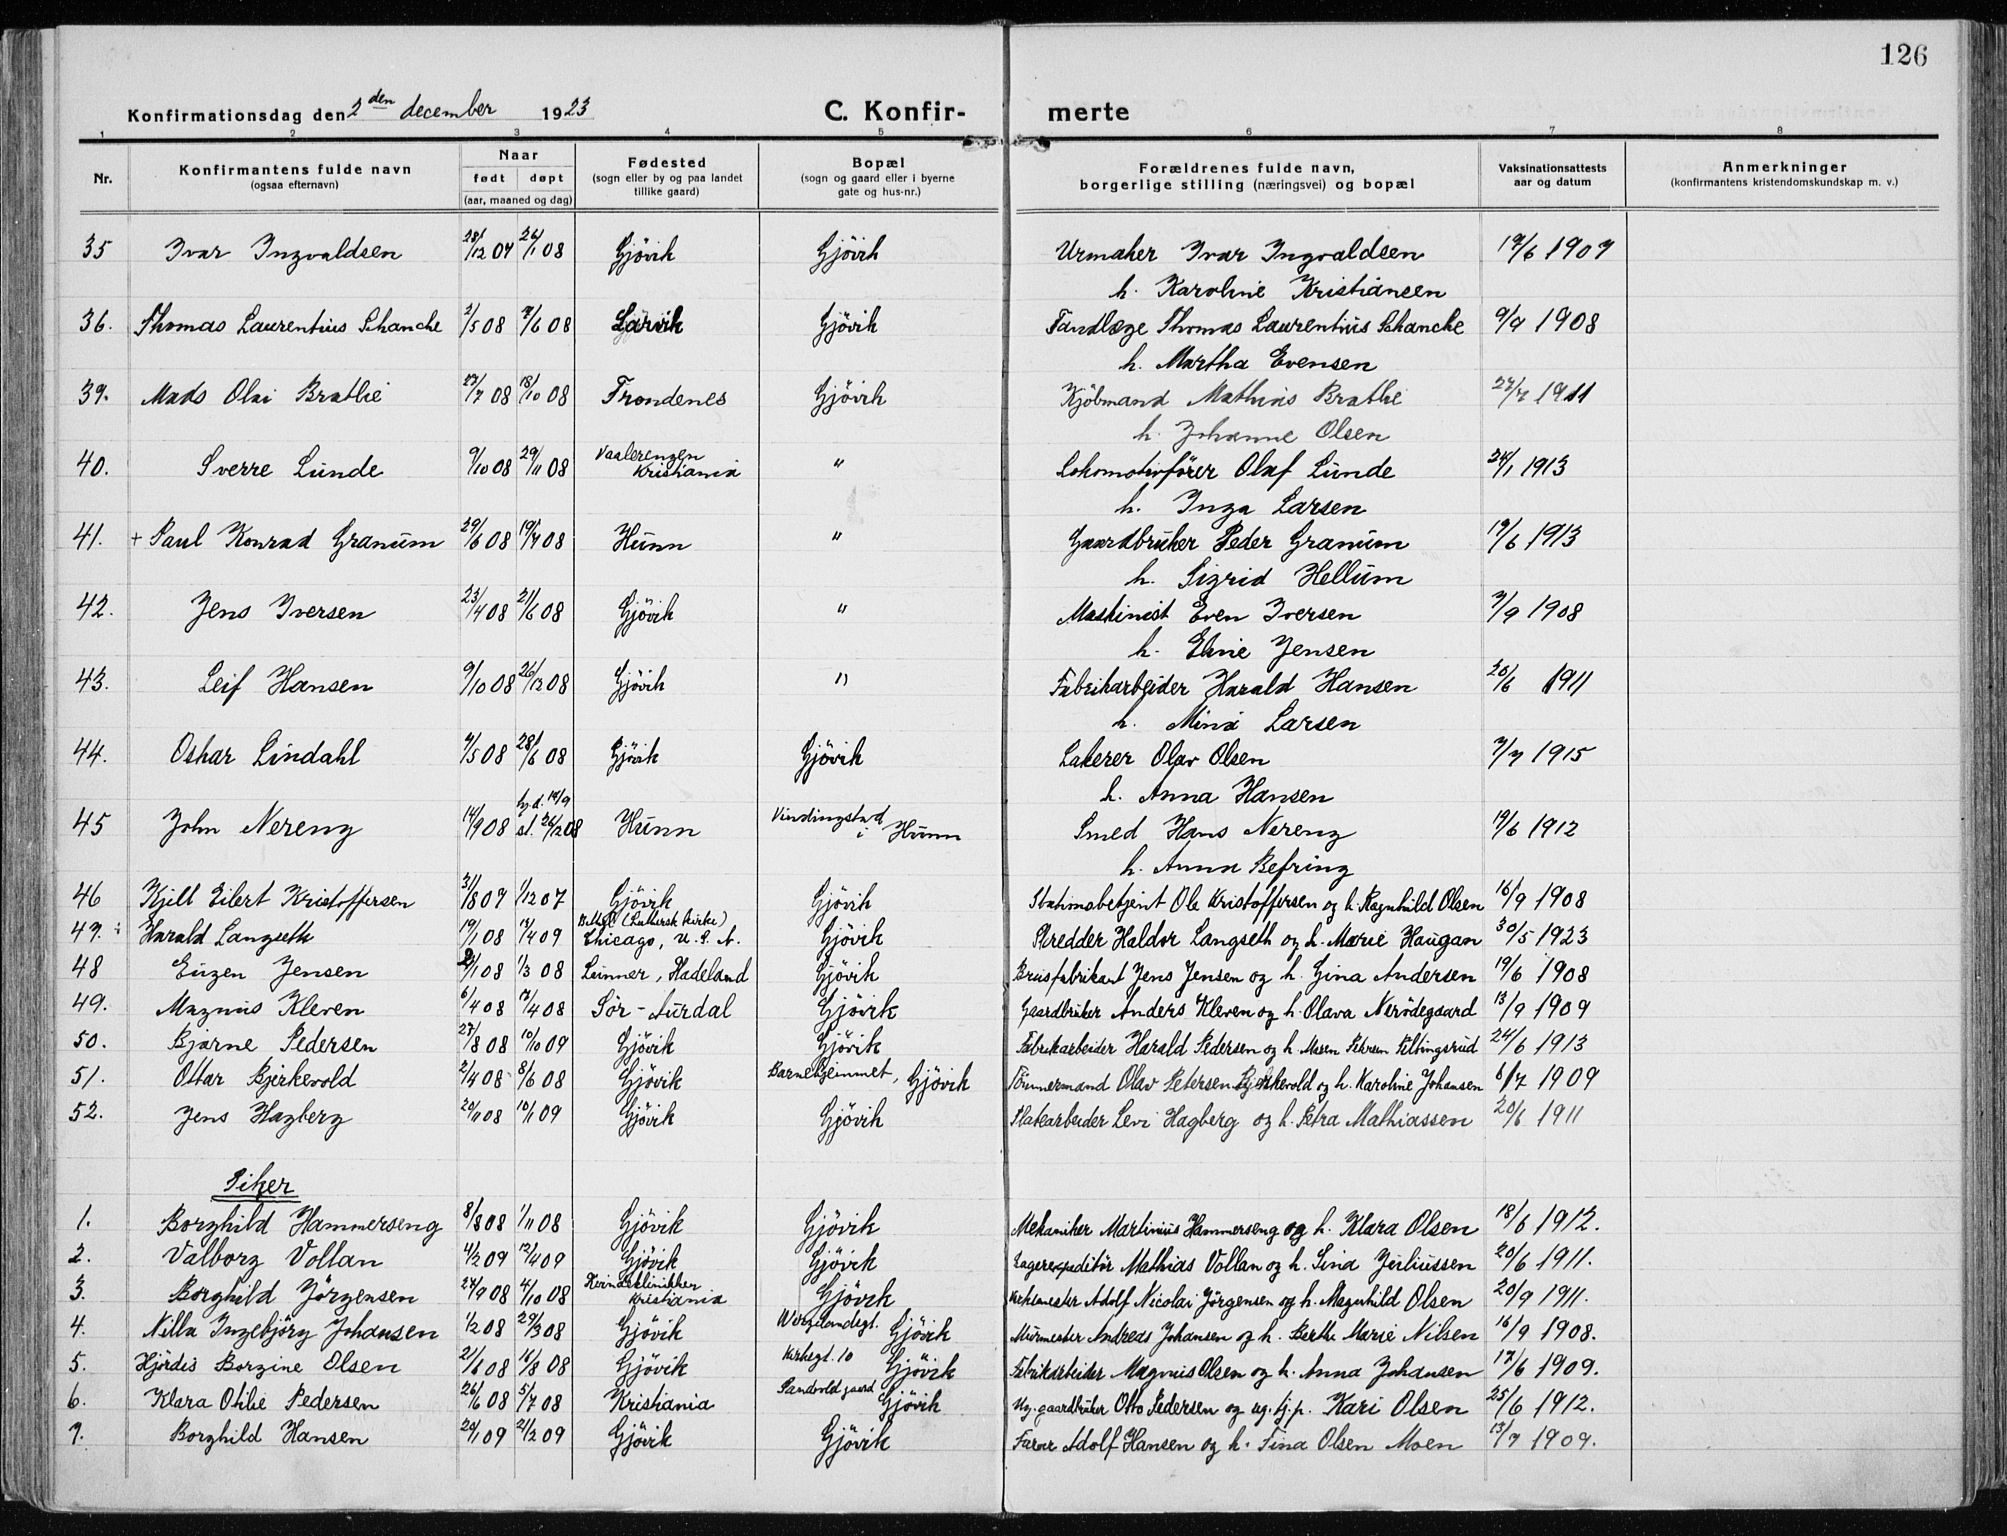 126
Konfirmationsdag den 2den december 1923 C. Konfirmerte
1 2 3 4 5 6 7 8
Nr. Konfirmantens fulde navn (ogsaa efternavn) Naar født døpt (aar, maaned og dag) Fødested (sogn eller by og paa landet tillike gaard) Bopæl (sogn og gaard eller i byerne gate og hus-nr.) Forældrenes fulde navn, borgerlige stilling (næringsvei) og bopæl Vaksinationsattests aar og datum Anmerkninger (konfirmantens kristendomskundskap m. v.)
35 Ivar Ingvaldsen 28/12 07 26/1 08 Gjövik Gjövik Urmaker Ivar Ingvaldsen 17/6 1907
h. Karoline Kristiansen
36. Thomas Laurentius Schanche 2/5 08 7/6 08 Larvik Gjövik Tandlæge Thomas Laurentius Schanche 9/9 1908
h. Martha Evensen
39. Mads Olai Brathe 27/7 08 18/10 08 Trondenes Gjövik Kjöbmand Mathias Brathe 27/7 1911
h. Johanne Olsen
40. Sverre Lunde 9/10 08 29/11 08 Vaalerengen Kristiania " Lokomotivförer Olaf Lunde 24/1 1913
h. Inga Larsen
41. + Paul Konrad Granum 29/6 08 19/7 08 Hunn " Gaardbruker Peder Granum 19/6 1913
h. Sigrid Hellum
42. Jens Iversen 23/4 08 21/6 08 Gjövik " Maskinist Even Iversen 7/9 1908
h. Eline Jensen
43. Leif Hansen 9/10 08 26/12 08 Gjövik " Fabrikarbeider Harald Hansen 20/6 1911
h. Mina Larsen
44. Oskar Lindahl 4/5 08 28/6 08 Gjövik Gjövik Lakerer Olav Olsen 7/7 1915
h. Anna Hansen
45 John Nereng 14/9 08 hj.d. 14/9 st. 26/12 08 Hunn Vindingstad i Hunn Smed Hans Nereng 19/6 1912
h. Anna Befring
46 Kjell Eilert Kristoffersen 31/8 07 1/12 07 Gjövik Gjövik Stationsbetjent Ole Kristoffersen og h. Ragnhild Olsen 16/9 1908
47. Harald Langseth 19/1 08 7/4 09 Bethel (Luthersk kirke) Chicago, U. S. A. Gjövik Skredder Haldor Langseth og h. Marie Haugan 30/5 1923
48 Eugen Jensen 2/1 08 1/3 08 Lunner, Hadeland Gjövik Brusfabrikant Jens Jensen og h. Gina Andersen 19/6 1908
49. Magnus Kleven 6/4 08 7/4 08 Sör-Aurdal Gjövik Gaardbruker Anders Kleven og h. Olava Nerödegaard 13/9 1909
50. Bjarne Pedersen 27/8 08 10/10 09 Gjövik Gjövik Fabrikarbeider Harald Pedersen og h. Maren Petersen 24/6 1913
51. Ottar Bjerkevold 2/4 08 8/6 08 Gjövik Barnehjemmet, Gjövik Tömmermand Olav Petersen Bjerkevold og h. Karoline Johansen 6/7 1909
52. Jens Hagberg 20/11 08 10/1 09 Gjövik Gjövik Platearbeider Levi Hagberg og h. Petra Mathiassen 20/6 1911
Piker
1. Borghild Hammerseng 8/8 08 1/11 08 Gjövik Gjövik Mekaniker Martinius Hammerseng og h. Klara Olsen 18/6 1912.
2. Valborg Vollan 4/2 09 12/4 09 Gjövik Gjövik Lagerexpeditör Mathias Vollan og h. Sina Juliussen 20/6 1911.
3. Borghild Jörgensen 24/9 08 4/10 08 Kvindeklinikken Kristiania Gjövik Adolf Nicolai Jörgensen og h. Magnhild Olsen 20/9 1911.
4. Nilla Ingebjörg Johansen 1/2 08 29/3 08 Gjövik Wergelandsgt. Gjövik Murmester Andreas Johansen og h. Berthe Marie Nilsen 16/9 1908.
5. Hjördis Borgine Olsen 21/6 08 16/8 08 Gjövik Kirkegt. 10 Gjövik Fabrikarbeider Magnus Olsen og h. Anna Johansen 17/6 1909.
6. Klara Otilie Pedersen 26/6 08 5/7 08 Kristiania Sandvold gaard Gjövik Ug. gaardbruker Otto Pedersen og ug. tj.p. Kari Olsen 25/6 1912.
7. Borghild Hansen 20/1 09 21/2 09 Gjövik Gjövik Farver Adolf Hansen og h. Tina Olsen Moen 13/7 1909.